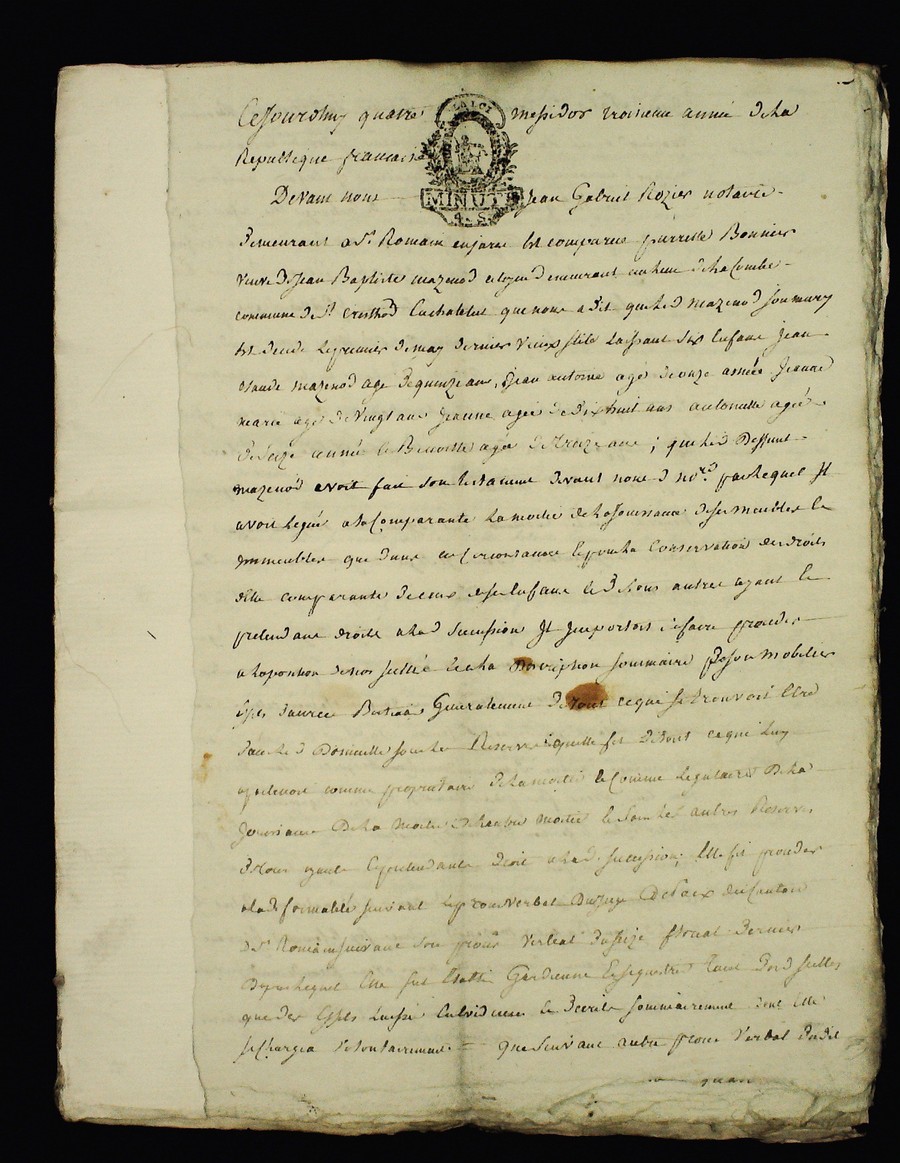 Cejourdhuy quatre messidor troisieme année de la
Republique francaise
LA LOI
MINUTE
4. S.
Devant nous Jean Gabriel Rozier notaire
demeurant a St Romain en jarez est comparue pierrette Bonnier
veuve de Jean Baptiste mazenod citoyen demeurant au lieu de la Combe
commune de St cristhod Lachatelus que nous a dit que led mazenod son mary
est decedé le premier de may dernier vieux stile Laissant six Enfans Jean
claude mazenod agé de quinze ans, Jean antoine agé de onze année Jeanne
marie agé de vingt ans Jeanne agée de dix huit ans antoinette agée
de seize année et Benoitte agée de treize ans ; que led Deffunt
mazenod avoit fait son testament devant nous d no.re par lequel Il
avoit legué a la Comparante La moitié de la Jouissance de ses meubles et
immeubles que dans ces circonstance et pour la Conservation des droits
delle comparante de ceux de ses Enfans et de tous autres ayant et
pretendant droits a lad succession Il Importoit de faire proceder
a laposition de nos scellé et a la Description sommaire de son mobilier
Effets danrée Bestiaux Generalement De tout ce qui se trouvoit Etre
dans led Domicille sous la Reserve quelle fit De tout ce qui Luy
apartenoit comme proprietaire de la moitié et comme legataire De la
Jouissance De la moitié De lautre moitié et sous les autres Reserves
de tous ayant et pretendants droit a lad succession ; Elle fit proceder
a lad formalité suivant le proces verbal Du Juge De Paix du Canton
de St Romain suivant son proces verbal du seize floreal Dernier
Depar lequel Elle fut Etablie Gardienne et sequestre tant Desd scellés
que des Effets Laissé En Evidence et Decrits sommairement dont Elle
se Chargea Volontairement = que suivant autre proces Verbal Dudit
quan